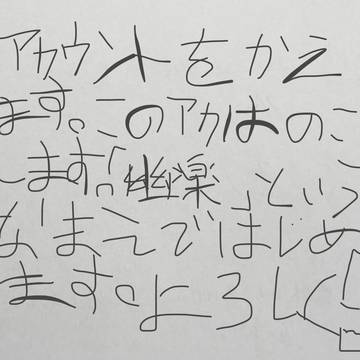 アカウントをかえ
ます。このアカはのこ
します。「幽楽」という
なまえではじめ
ます。よろしく